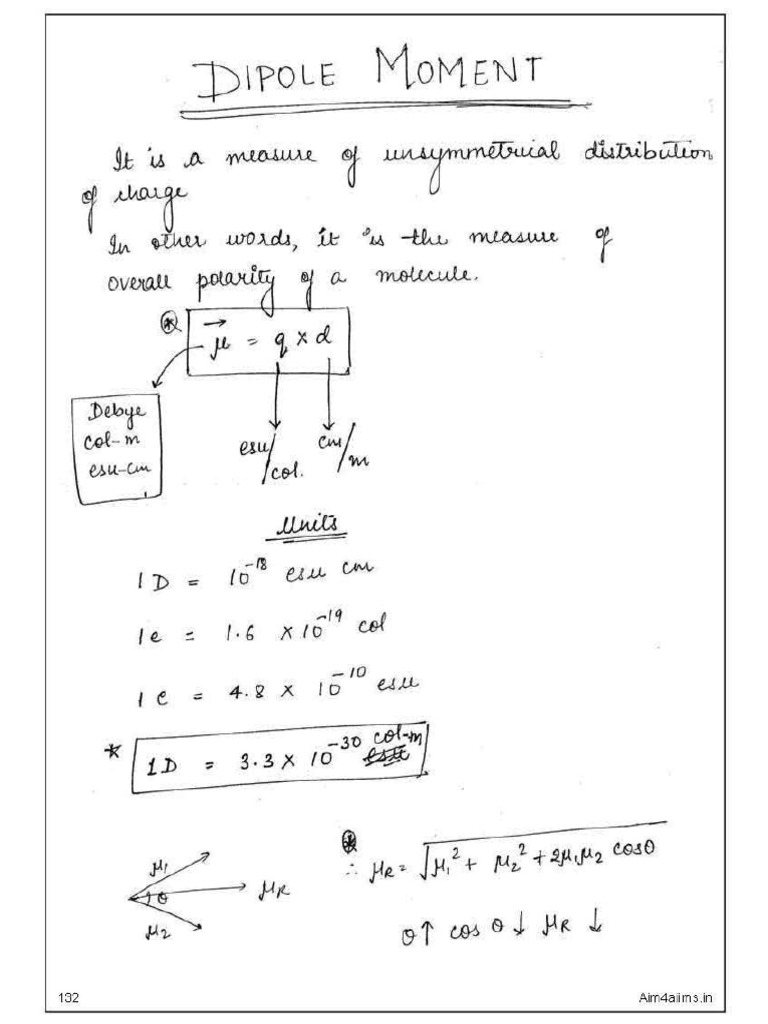 DIPOLE MOMENT
It is a measure of unsymmetrical distribution
of charge
In other words, it is the measure of
overall polarity of a molecule.
* μ⃗ = q × d
Debye
col-m
esu-cm
esu/col.
cm/m
Units
1 D = 10⁻¹⁸ esu cm
1e = 1.6 × 10⁻¹⁹ col
1e = 4.8 × 10⁻¹⁰ esu
* 1D = 3.3 × 10⁻³⁰ col-m
μ₁
θ
μR
μ₂
*
∴ μR = √μ₁² + μ₂² + 2μ₁μ₂ cosθ
θ↑ cos θ↓ μR ↓
132
Aim4aiims.in